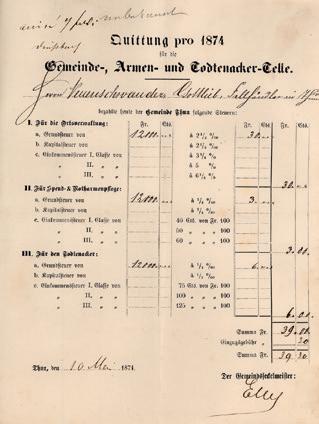 Quittung pro 1874
für die
Gemeinde-, Armen- und Todtenacker-Telle.
Herr Neuenschwander Gottlieb,
bezahlte heute der Gemeinde Thun folgende Steuern:
I. Für die Ortsverwaltung: Fr. Cts. Fr. Cts.
a. Grundsteuer von 12000 à 2 5/10 ‰ 30
b. Kapitalsteuer von à 2 5/10 ‰
c. Einkommenssteuer I. Classe von
II. „ „
III. „ „
30.
II. Für Spend- & Notharmenpflege:
a. Grundsteuer von 12000 3.
b. Kapitalsteuer von
c. Einkommenssteuer I. Classe von 40 Cts. von Fr. 100
II. „ „ „ Fr. 100
III. „ „ „ Fr. 100
3.00.
III. Für den Todtenacker:
a. Grundsteuer von 12000 6
b. Kapitalsteuer von
c. Einkommenssteuer I. Classe von 75 Cts. von Fr. 100
II. „ „ 100 „ Fr. 100
III. „ „ 125 „ Fr. 100
6.00
Summa Fr. 39.00
Einzugsgebühr „ 20
Summa Fr. 39 20
Thun, den 10. Mai 1874.
Der Gemeindseckelmeister: